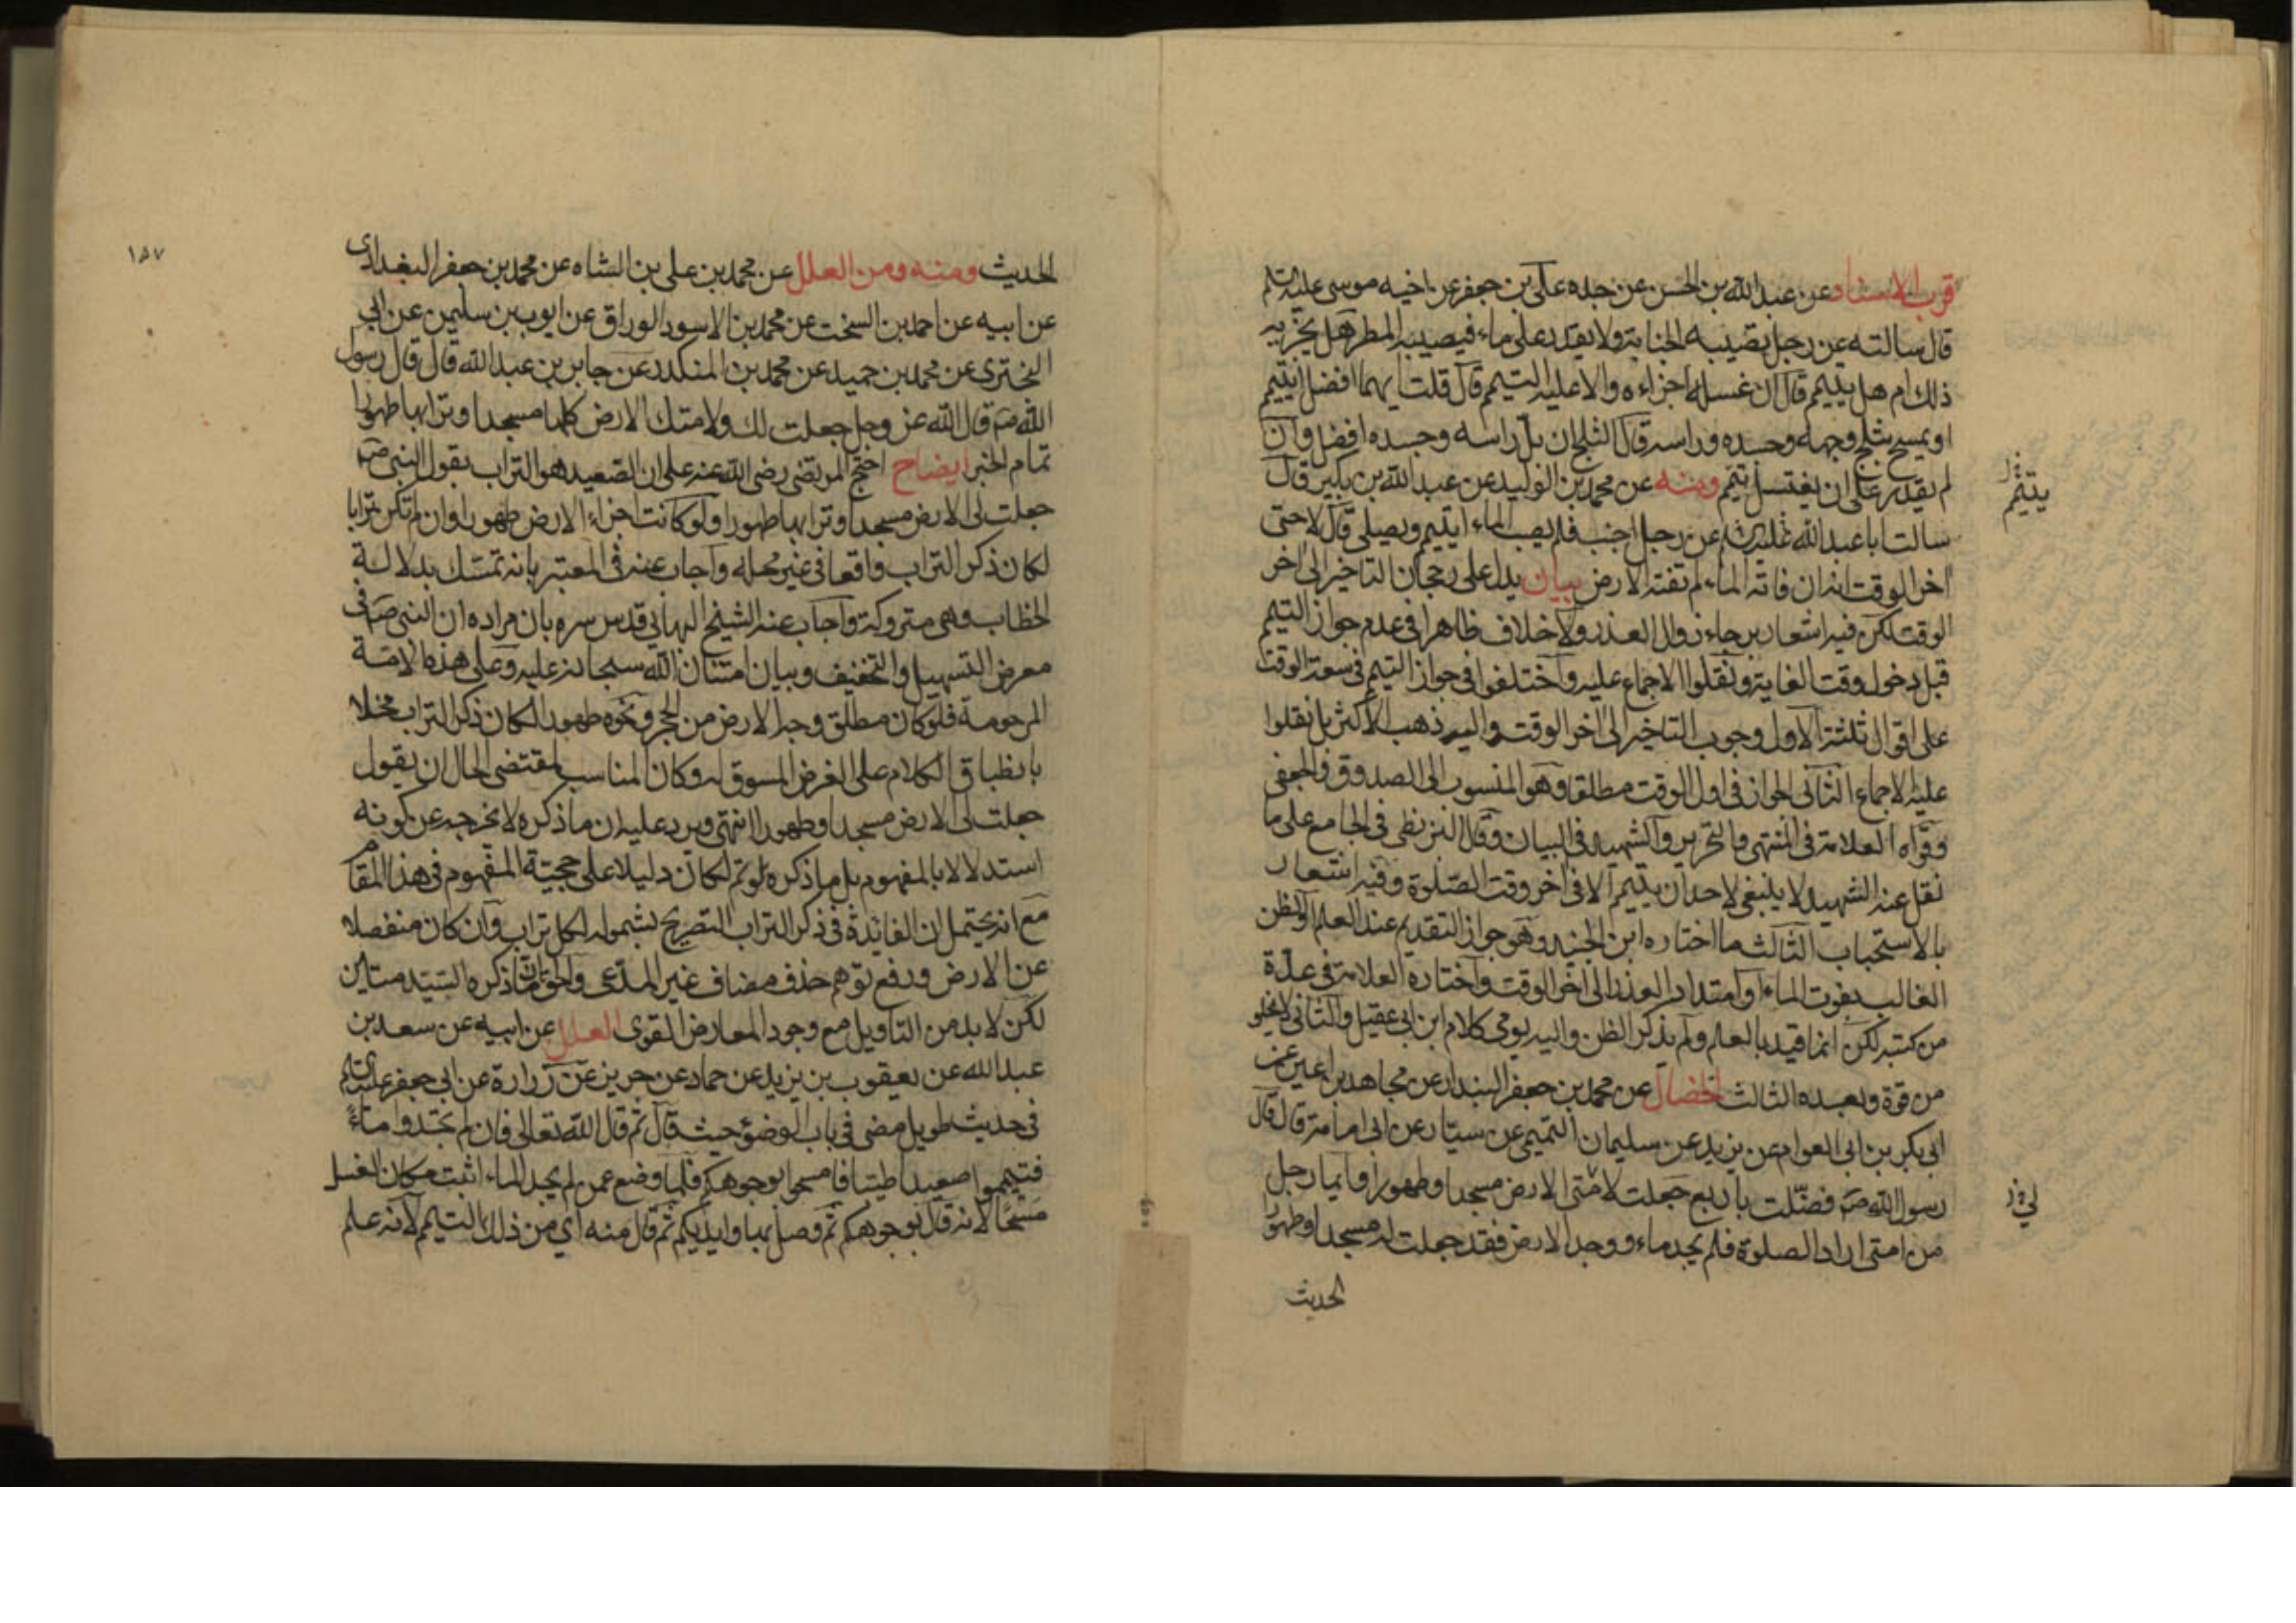 قرب الاسناد عن عبد الله بن الحسن عن جده علي بن جعفر عن اخيه موسى عليه السلم
قال سالته عن رجل تصيبه الجنابة ولا يقدر على ماء فيصيبه المطر هل يجزيه
ذلك ام هل يتيمم قال ان غسله اجزاءه والا عليه التيمم قال قلت ايهما افضل ايتيمم
او يمسح بثلج وجهه وجسده وراسه قال الثلج ان بل راسه وجسده افضل وان
لم يقدر على ان يغتسل تيمم ومنه عن محمد بن الوليد عن عبد الله بن بكير قال
يتيمم
سالت ابا عبد الله عليه السلم عن رجل اجنب فلم يصب الماء ايتيمم ويصلي قال لا حتى
اخر الوقت انه ان فاته الماء لم تفته الارض بيان يدل على رجحان التاخير الى اخر
الوقت لكن فيه اشعار برجاء زوال العذر ولا خلاف ظاهرا في عدم جواز التيمم
قبل دخول وقت الغاية ونقلوا الاجماع عليه واختلفوا في جواز التيمم في سعة الوقت
على اقوال ثلثة الاول وجوب التاخير الى اخر الوقت واليه ذهب الاكثر بل نقلوا
عليه الاجماع الثاني الجواز في اول الوقت مطلقا وهو المنسوب الى الصدوق والجعفي
وقواه العلامة في المنتهى والتحرير والشهيد في البيان وقال البزنطي في الجامع على ما
نقل عنه الشهيد لا ينبغي لاحد ان يتيمم الا في اخر وقت الصلوة وفيه اشعار
بالاستحباب الثالث ما اختاره ابن الجنيد وهو جواز التقديم عند العلم او الظن
الغالب بفوت الماء او امتداد العذر الى اخر الوقت واختاره العلامة في عدة
من كتبه لكن انما قيد بالعلم ولم يذكر الظن واليه يومي كلام ابن ابي عقيل والثاني لا يخلو
من قوة وبعده الثالث الخصال عن محمد بن جعفر البندار عن مجاهد بن اعين عن
ابي بكر بن ابي العوام عن يزيد عن سليمان التميمي عن سيار عن ابي امامة قال قال
رسول الله ص فضلت باربع جعلت لامتي الارض مسجدا وطهورا وايما رجل
لي
من امتي اراد الصلوة فلم يجد ماء ووجد الارض فقد جعلت له مسجدا وطهورا
الحديث
١٨٧
الحديث ومنه ومن العلل عن محمد بن علي بن الشاه عن محمد بن جعفر البغدادي
عن ابيه عن احمد بن السخت عن محمد بن الاسود الوراق عن ايوب بن سليمن عن ابي
البختري عن محمد بن حميد عن محمد بن المنكدر عن جابر بن عبد الله قال قال رسول
الله ص قال الله عز وجل جعلت لك ولامتك الارض كلها مسجدا وترابها طهورا
تمام الخبر ايضاح احتج المرتضى رضي الله عنه على ان الصعيد هو التراب بقول النبي ص
جعلت لي الارض مسجدا وترابها طهورا ولو كانت اجزاء الارض طهورا وان لم تكن ترابا
لكان ذكر التراب واقعا في غير محله واجاب عنه في المعتبر بانه تمسك بدلالة
الخطاب وهي متروكة واجاب عنه الشيخ البهائي قدس سره بان مراده ان النبي ص في
معرض التسهيل والتخفيف وبيان امتنان الله سبحانه عليه وعلى هذه الامة
المرحومة فلو كان مطلق وجه الارض من الحجر ونحوه طهورا لكان ذكر التراب مخلا
بانطباق الكلام على الغرض المسوق له وكان المناسب لمقتضى الحال ان يقول
جعلت لي الارض مسجدا وطهورا انتهى ويرد عليه ان ما ذكره لا يخرجه عن كونه
استدلالا بالمفهوم بل ما ذكره لو تم لكان دليلا على حجية المفهوم في هذا المقام
مع انه يحتمل ان الفائدة في ذكر التراب التصريح بشموله لكل تراب وان كان منفصلا
عن الارض ورفع توهم حذف مضاف غير المدعى والحق ان ما ذكره السيد متين
لكن لا بد من التاويل مع وجود المعارض القوى العلل عن ابيه عن سعد بن
عبد الله عن يعقوب بن يزيد عن حماد عن حريز عن زرارة عن ابي جعفر عليه السلم
في حديث طويل مضى في باب الوضوء حيث قال ثم قال الله تعالى فان لم تجدوا ماء
فتيمموا صعيدا طيبا فامسحوا بوجوهكم فلما وضع عمن لم يجد الماء اثبت مكان الغسل
مسحا لانه قال بوجوهكم ثم وصل بها وايديكم ثم قال منه اي من ذلك التيمم لانه علم